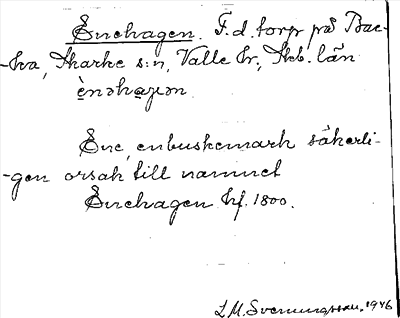 Enehagen. F. d. torp på Bac-
-ka, Skarke s:n, Valle hr, Skb. län
ènəhàgən.
Ene, enbuskemark säkerli-
-gen orsak till namnet
Enehagen hf. 1800.
L. M. Svenungsson. 1946